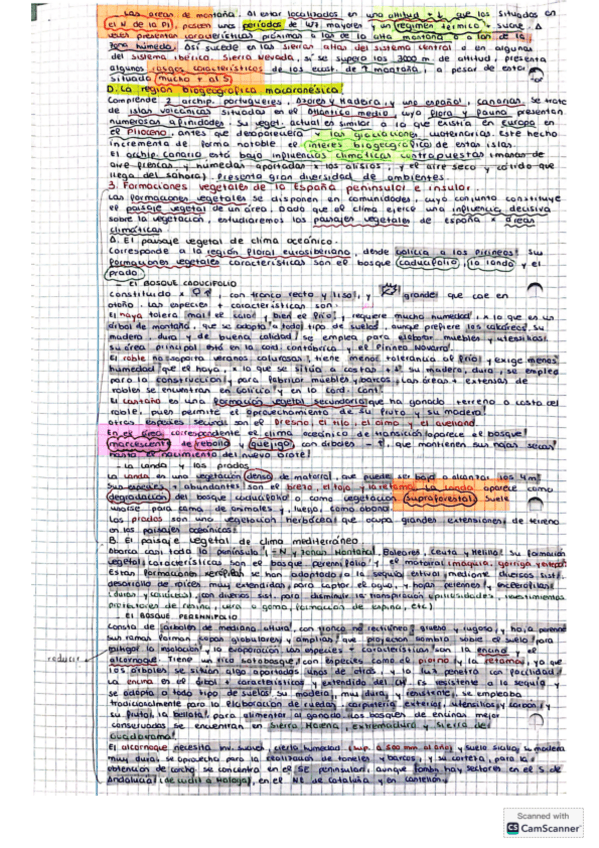 - Las áreas de montaña. Al estar localizados en una altitud + ↓ que las situadas en
el N de la PI, poseen unas periodos de Tª mayores y un régimen térmico + suave. A
veces presentan características próximas a las de la alta montaña o a las de la
zona húmeda. Así sucede en las sierras altas del sistema Central o en algunas
del sistema Ibérico. Sierra Nevada, si se supera los 3000 m de altitud, presenta
algunos rasgos característicos de los ecosist. de ↑ montaña, a pesar de estar
situada mucho + al S.
D. La región biogeográfica macaronésica.
Comprende 2 archip. portugueses, Azores y Madeira, y uno español, Canarias. Se trata
de islas volcánicas situadas en el Atlántico medio, cuya flora y fauna presentan
numerosas afinidades. Su veget. actual es similar a la que existía en Europa en
el Plioceno, antes que desapareciera x las glaciaciones cuaternarias. Este hecho
incrementa de forma notable el interés biogeográfico de estas islas.
El archip. Canario está bajo influencias climáticas contrapuestas (masas de
aire frescas y húmedas aportadas x los alisios, y el aire seco y cálido que
llega del Sáhara). Presenta gran diversidad de ambientes.
3. Formaciones vegetales de la España peninsular e insular.
Las formaciones vegetales se disponen en comunidades, cuyo conjunto constituye
el paisaje vegetal de un área. Dado que el clima ejerce una influencia decisiva
sobre la vegetación, estudiaremos los paisajes vegetales de España x áreas
climáticas.
A. El paisaje vegetal de clima oceánico.
Corresponde a la región floral eurosiberiana, desde Galicia a los Pirineos. Sus
formaciones vegetales características son el bosque caducifolio, la landa y el
prado.
- EL BOSQUE CADUCIFOLIO
constituido x con tronco recto y liso, y grande que cae en
otoño. Las especies + características son:
El haya tolera mal el calor y bien el frío, requiere mucha humedad, x lo que es un
árbol de montaña, que se adapta a todo tipo de suelos, aunque prefiere los calcáreos. Su
madera, dura y de buena calidad, se emplea para elaborar muebles y utensilios.
Su área principal está en la Cord. Cantábrica y el Pirineo Navarro.
El roble no soporta veranos calurosos, tiene menor tolerancia al frío y exige menos
humedad que el haya, x lo que se sitúa a cotas + ↓. Su madera, dura, se emplea
para la construcción y para fabricar muebles y barcos. Las áreas + extensas de
robles se encuentran en Galicia y en la Cord. Cant.
El castaño es una formación vegetal secundaria que ha ganado terreno a costa del
roble, pues permite el aprovechamiento de su fruto y su madera.
Otras especies secund. son el fresno, el tilo, el olmo y el avellano.
En el área correspondiente al clima oceánico de transición aparece el bosque
marcescente de rebollo y quejigo, con árboles que mantienen sus hojas secas
hasta el nacimiento del nuevo brote.
- La landa y los prados
La landa es una vegetación densa de matorral, que puede ser baja o alcanzar los 4m.
Sus especies + abundantes son el brezo, el tojo y la retama. La landa aparece como
degradación del bosque caducifolio o como vegetación supraforestal. Suele
usarse para cama de animales y, luego, como abono.
Los prados son una vegetación herbácea que ocupa grandes extensiones de terreno
en los paisajes oceánicos.
B. El paisaje vegetal de clima mediterráneo.
Abarca casi toda la península (-N y zonas montaña), Baleares, Ceuta y Melilla. Su formación
vegetal características son el bosque perennifolio y el matorral (maquia, garriga y estepa)
Estas formaciones xerófilas se han adaptado a la sequía estival mediante diversos sist:
desarrollo de raíces muy extendidas, para captar el agua, y hojas perennes y esclerófilas
(duras y coriáceas), con diversos sist. para disminuir la transpiración (pilosidades, revestimientos
protectores de resina, cera o goma, formación de espina, etc.)
EL BOSQUE PERENNIFOLIO
Consta de árboles de mediana altura, con tronco no rectilíneo, grueso y rugoso, y hoja perenne.
Sus ramas forman copas globulares y amplias, que proyectan sombra sobre el suelo para
mitigar la insolación y la evaporación. Las especies + características son la encina y el
reducir
alcornoque. Tiene un rico sotobosque, con especies como el piorno y la retama, ya que
los árboles se sitúan algo apartados unos de otros y la luz penetra con facilidad.
La encina es el árbol + característico y extendido del CM. Es resistente a la sequía y
se adapta a todo tipo de suelos. Su madera, muy dura y resistente, se empleaba
tradicionalmente para la elaboración de ruedas, carpintería exterior, utensilios y carbón, y
su fruto, la bellota, para alimentar al ganado. Los bosques de encinas mejor
conservados se encuentran en Sierra Morena, Extremadura y Sierra de
Guadarrama.
El alcornoque necesita inv. suaves, cierta humedad (sup. a 500 mm al año) y suelo silíceo. Su madera
muy dura, se aprovecha para la realización de toneles y barcos, y su corteza, para la
obtención de corcho. Se concentra en el SE peninsular, aunque también hay sectores en el S de
Andalucía (de Cádiz a Málaga), en el NE de Cataluña y en Castellón.
Scanned with
CS CamScanner